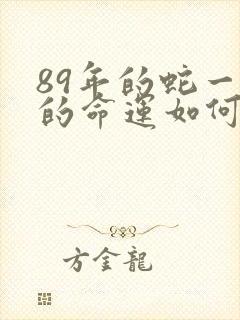 89年的蛇一
的命运如何
方金龍